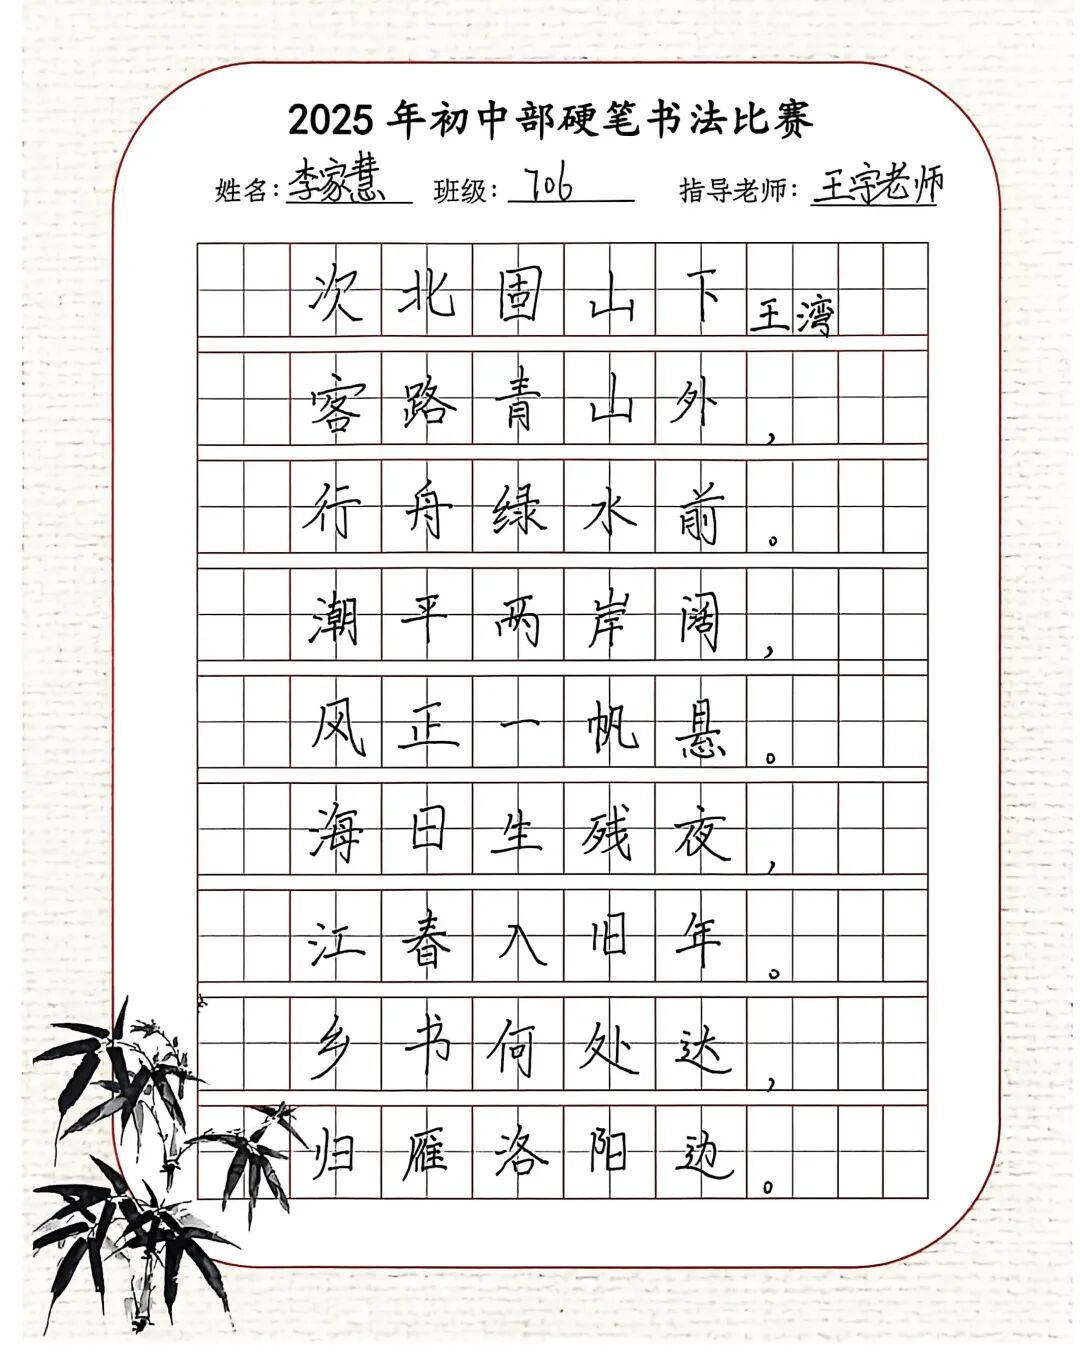 2025年初中部硬笔书法比赛
姓名：李家慧 班级：706 指导老师：王宇老师
次北固山下 王湾
客路青山外，
行舟绿水前。
潮平两岸阔，
风正一帆悬。
海日生残夜，
江春入旧年。
乡书何处达，
归雁洛阳边。